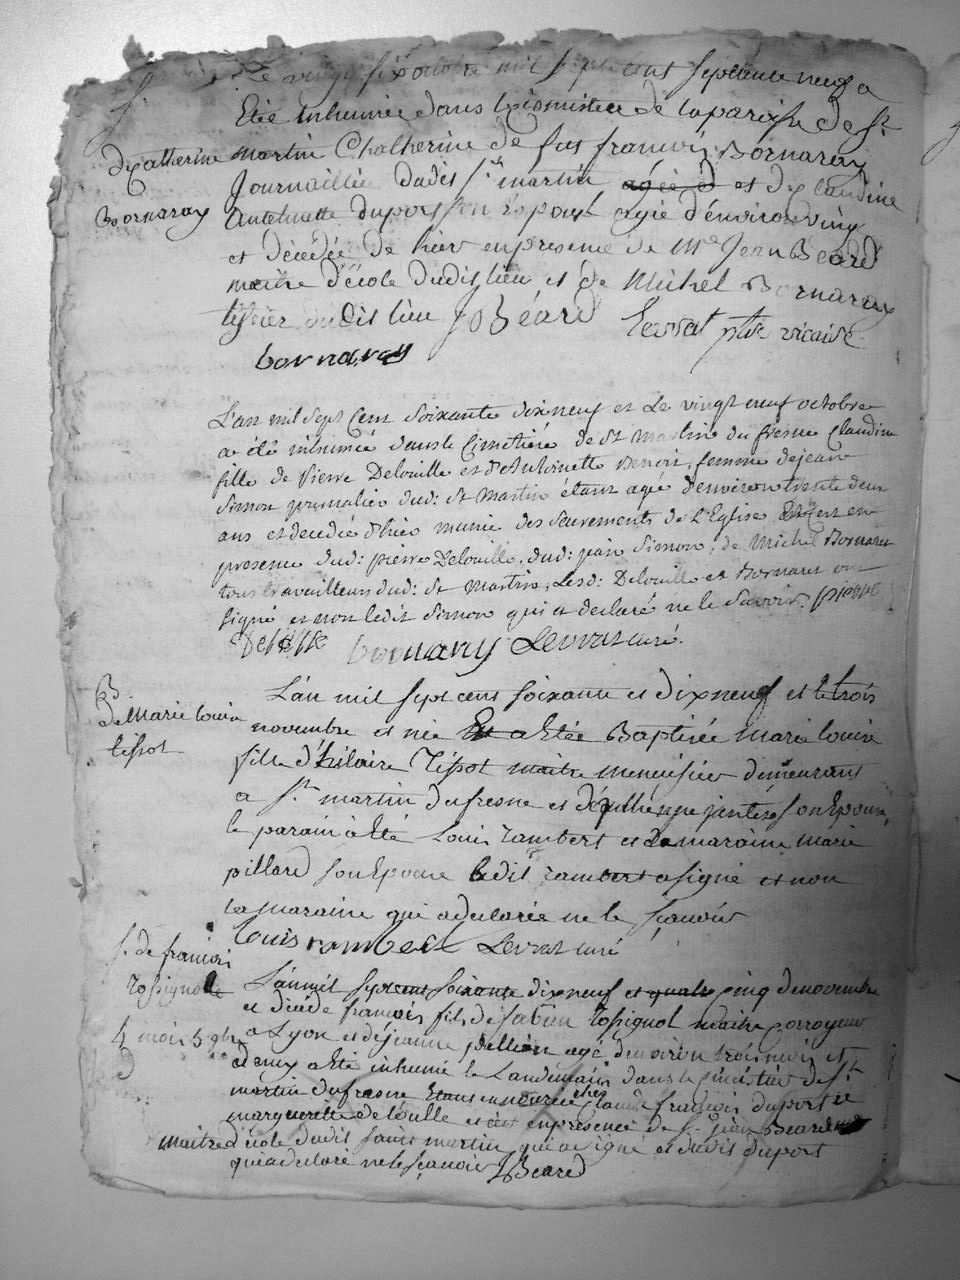 S.
de Catherine
Bornaray
Le vingt six octobre mil sept cent septante neuf a
Eté inhumée dans le cimistiere de la paroisse de St
martin Chatherine de fut francois Bornaray
Journaillie dudit St martin agée d et de claudine
Antoinette duport son Epouse agée d'environ ving
et décédée de hier en presence de Me Jean Beard
maitre d'école dudit lieu et de Michel Bornaray
tissier dudit lieu J Béard Levrat ptre vicaire
bornaray
L'an mil sept Cent soixante dixneuf et Le vingt neuf octobre
a été inhumée dans le Cimetiére de St Martin du fresne Claudine
fille de Pierre Delouille et d'Antoinette Benoit, femme de jean
Simon journalier dud: St Martin étant agée d'environ trente deux
ans et decedée d'hier munie des sacrements de L'Eglise en
presence dud: pierre Delouille, dud: jean Simon, de Michel Bornaret
tous travailleurs dud: St Martin, Lesd: Delouille et Bornaret ont
signé et non ledit Simon qui a declaré ne le savoir. pierre
bornaray Levrat curé.
B.
de Marie Louise
tissot
L'an mil sept cent soixante et dixneuf et le trois
novembre et née Et a Etée Baptisée marie louise
fille d'hilaire Tissot maitre menuisier demeurant
a St martin dufresne et de son Epouse,
le parain a Eté Louis rambert et la maraine marie
pillard son Epouse ledit rambert a signé et non
la maraine qui a declarée ne le sçavoir
louis rambert Levrat curé
S. de francois
rossignole
4 mois 5 9bre
L'an mil sept cent soixante dixneuf et quatre cinq de novembre
et décédé francois fils de rossignol maitre corroyeur
a Lyon et de jeanne agé d'environ trois mois et
demy a Eté inhumé le Landemain dans le cimetière de St
martin dufresne Etant en nourice chez claude francois duport et
marguerite delouille et c'est en presence de Sr jean Beard
maitre d'école dudit saint martin qui a signé et dudit duport
qui a declaré ne le sçavoir J Beard